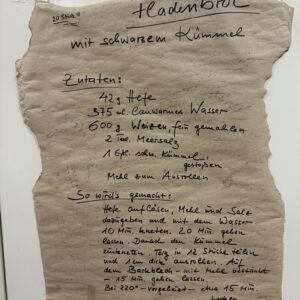 Fladenbrot
mit schwarzem Kümmel
Zutaten:
42g Hefe
375 ml. lauwarmes Wasser
600 g. Weizen, fein gemahlen
2 Teel. Meersalz
1 Eßl. schw. Kümmel,
gestoßen
Mehl zum Ausrollen
So wird's gemacht:
Hefe auflösen, Mehl und Salz
dazugeben und mit dem Wasser
10 Min. kneten. 20 Min. gehen
lassen. Danach den Kümmel
einkneten. Teig in 12 Stücke teilen
und 1 cm dick ausrollen. Auf
dem Backblech - mit Mehl bestäubt
- 15 Min. gehen lassen.
Bei 220° - vorgeheizt - etwa 15 Min.